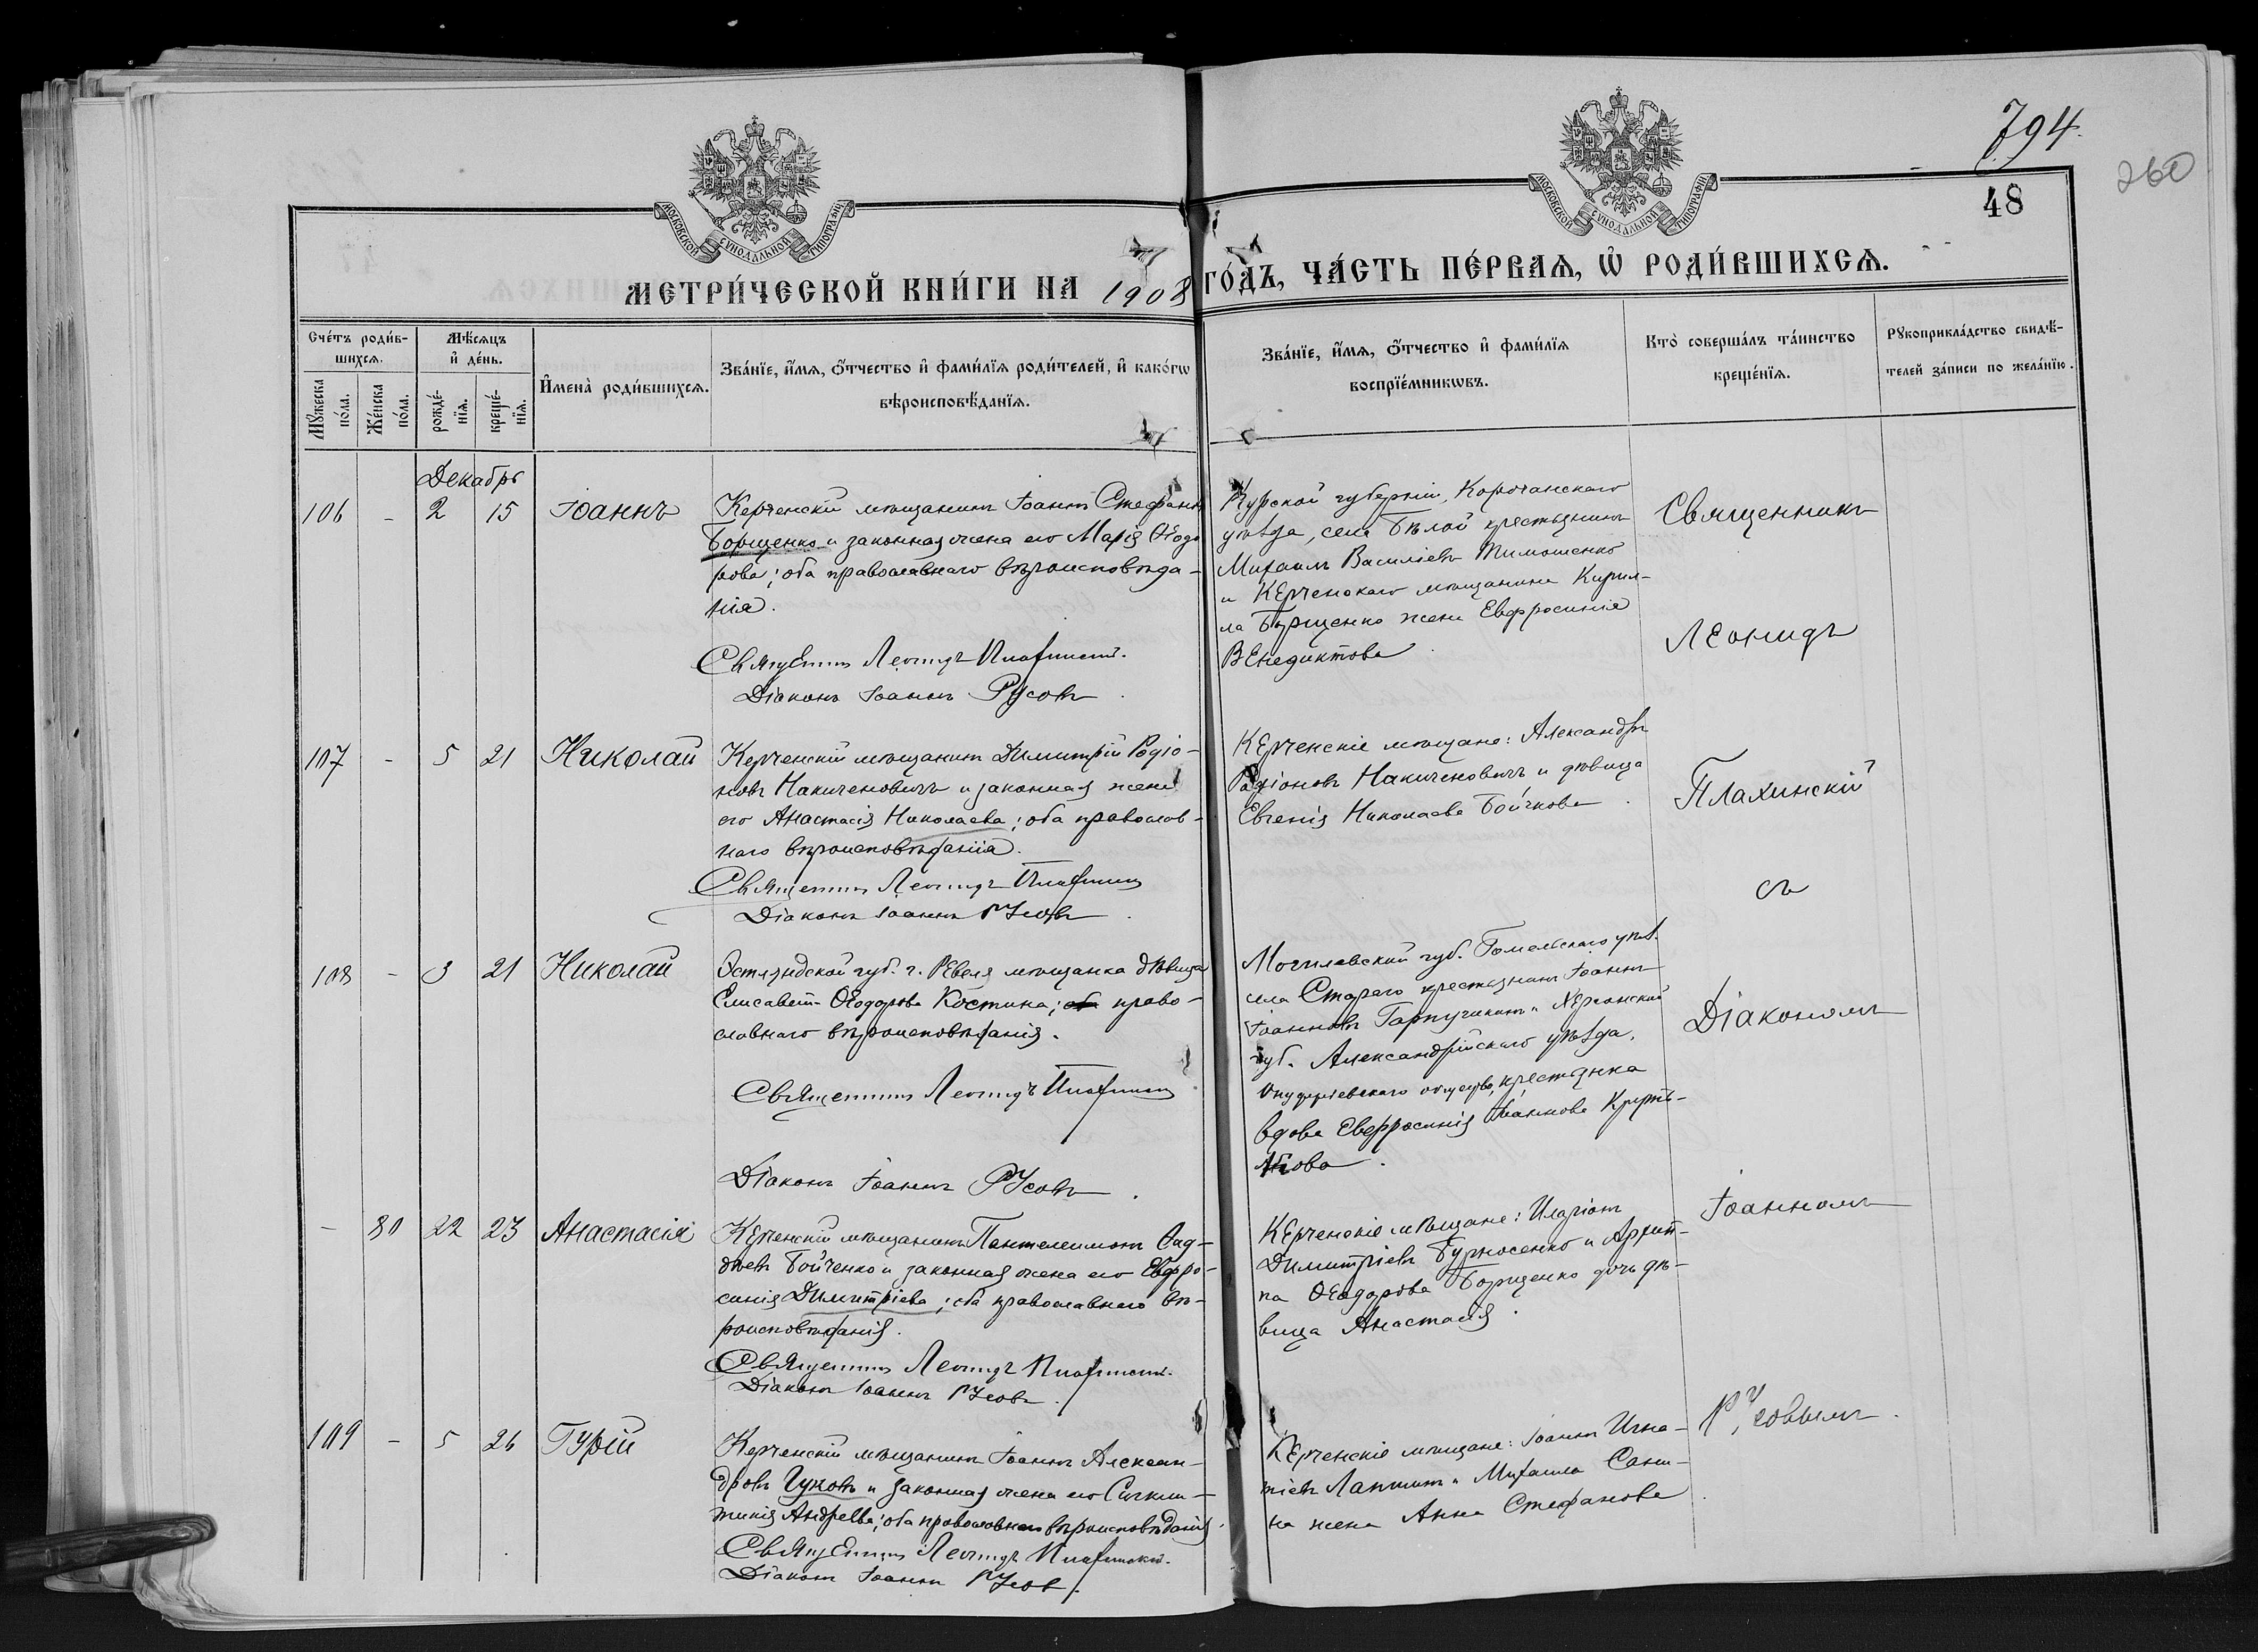 794.
260
48
МОСКОВСКОЙ СѴНОДАЛЬНОЙ ТИПОГРАФІИ
МОСКОВСКОЙ СѴНОДАЛЬНОЙ ТИПОГРАФІИ
МЕТРИ́ЧЕСКОЙ КНИ́ГИ НА 1908 ГО́ДЪ, ЧА́СТЬ ПЕ́РВАѦ, Ѡ҆ РОДИ́ВШИХСѦ.
Сче́тъ роди́в-
шихсѧ.
Мꙋ́жеска по́ла.
Же́нска по́ла.
Мѣ́сѧцъ
и҆ де́нь.
рожде́-нїѧ.
креще́-нїѧ.
И҆мена̀ роди́вшихсѧ.
Зва́нїе, и҆́мѧ, ѻ҆́тчество и҆ фами́лїѧ роди́телей, и҆ како́гѡ
вѣроисповѣ́данїѧ.
Зва́нїе, и҆́мѧ, ѻ҆́тчество и҆ фами́лїѧ
воспрїе́мникѡвъ.
Кто̀ соверша́лъ та́инство
креще́нїѧ.
Рꙋкоприкла́дство свидѣ́-
телей за́писи по жела́нїю.
Декабрь
106 - 2 15 Іоаннъ
Керченскій мѣщанинъ Іоаннъ Стефановъ
Борщенко и законная жена его Марія Ѳеодо
рова; оба православнаго вѣроисповѣда-
нія.
Священникъ Леонидъ Плахинскій.
Діаконъ Іоаннъ Русовъ.
Курской губерніи, Корочанскаго
уѣзда, села Бѣлой крестьянинъ
Михаилъ Васильевъ Тимошенко
и Керченскаго мѣщанина Кирил-
ла Борщенко жена Евфросинія
Венедиктова
107 - 5 21 Николай
Керченскій мѣщанинъ Димитрій Родіо-
новъ Накиченовичъ и законная жена
его Анастасія Николаева; оба православ-
наго вѣроисповѣданія.
Священникъ Леонидъ Плахинскій
Діаконъ Іоаннъ Русовъ.
Керченскіе мѣщане: Александръ
Родіоновъ Накиченовичъ и дѣвица
Евгенія Николаева Бойчкова.
108 - 3 21 Николай
Эстляндской губ. г. Ревеля мѣщанка дѣвица
Елисавета Ѳеодорова Костина; право-
славнаго вѣроисповѣданія.
Священникъ Леонидъ Плахинскій
Діаконъ Іоаннъ Русовъ.
Могилевской губ. Гомельскаго уѣз.
села Стараго крестьянинъ Іоаннъ
Іоанновъ и Херсонской
губ. Александрійскаго уѣзда,
общества, крестьянка
вдова Евфросинія Іоаннова
- 80 22 23 Анастасія
Керченскій мѣщанинъ Пантелеимонъ Ѳад-
дѣевъ Бойченко и законная жена его Евфро-
синія Димитріева; оба православнаго вѣ-
роисповѣданія.
Священникъ Леонидъ Плахинскій.
Діаконъ Іоаннъ Русовъ.
Керченскіе мѣщане: Иларіонъ
Димитріевъ Бурносенко и Архип-
па Ѳеодорова Борщенко дочь дѣ-
вица Анастасія.
109 - 5 26 Гурій
Керченскій мѣщанинъ Іоаннъ Алексан-
дровъ Чуковъ и законная жена его Синкли-
тикія Андреева; оба православнаго вѣроисповѣданія.
Священникъ Леонидъ Плахинскій.
Діаконъ Іоаннъ Русовъ.
Керченскіе мѣщане: Іоаннъ Игна-
тіевъ Лапшинъ и Михаила Сани-
на жена Анна Стефанова
Священникъ
Леонидъ
Плахинскій
съ
Діакономъ
Іоанномъ
Русовымъ.